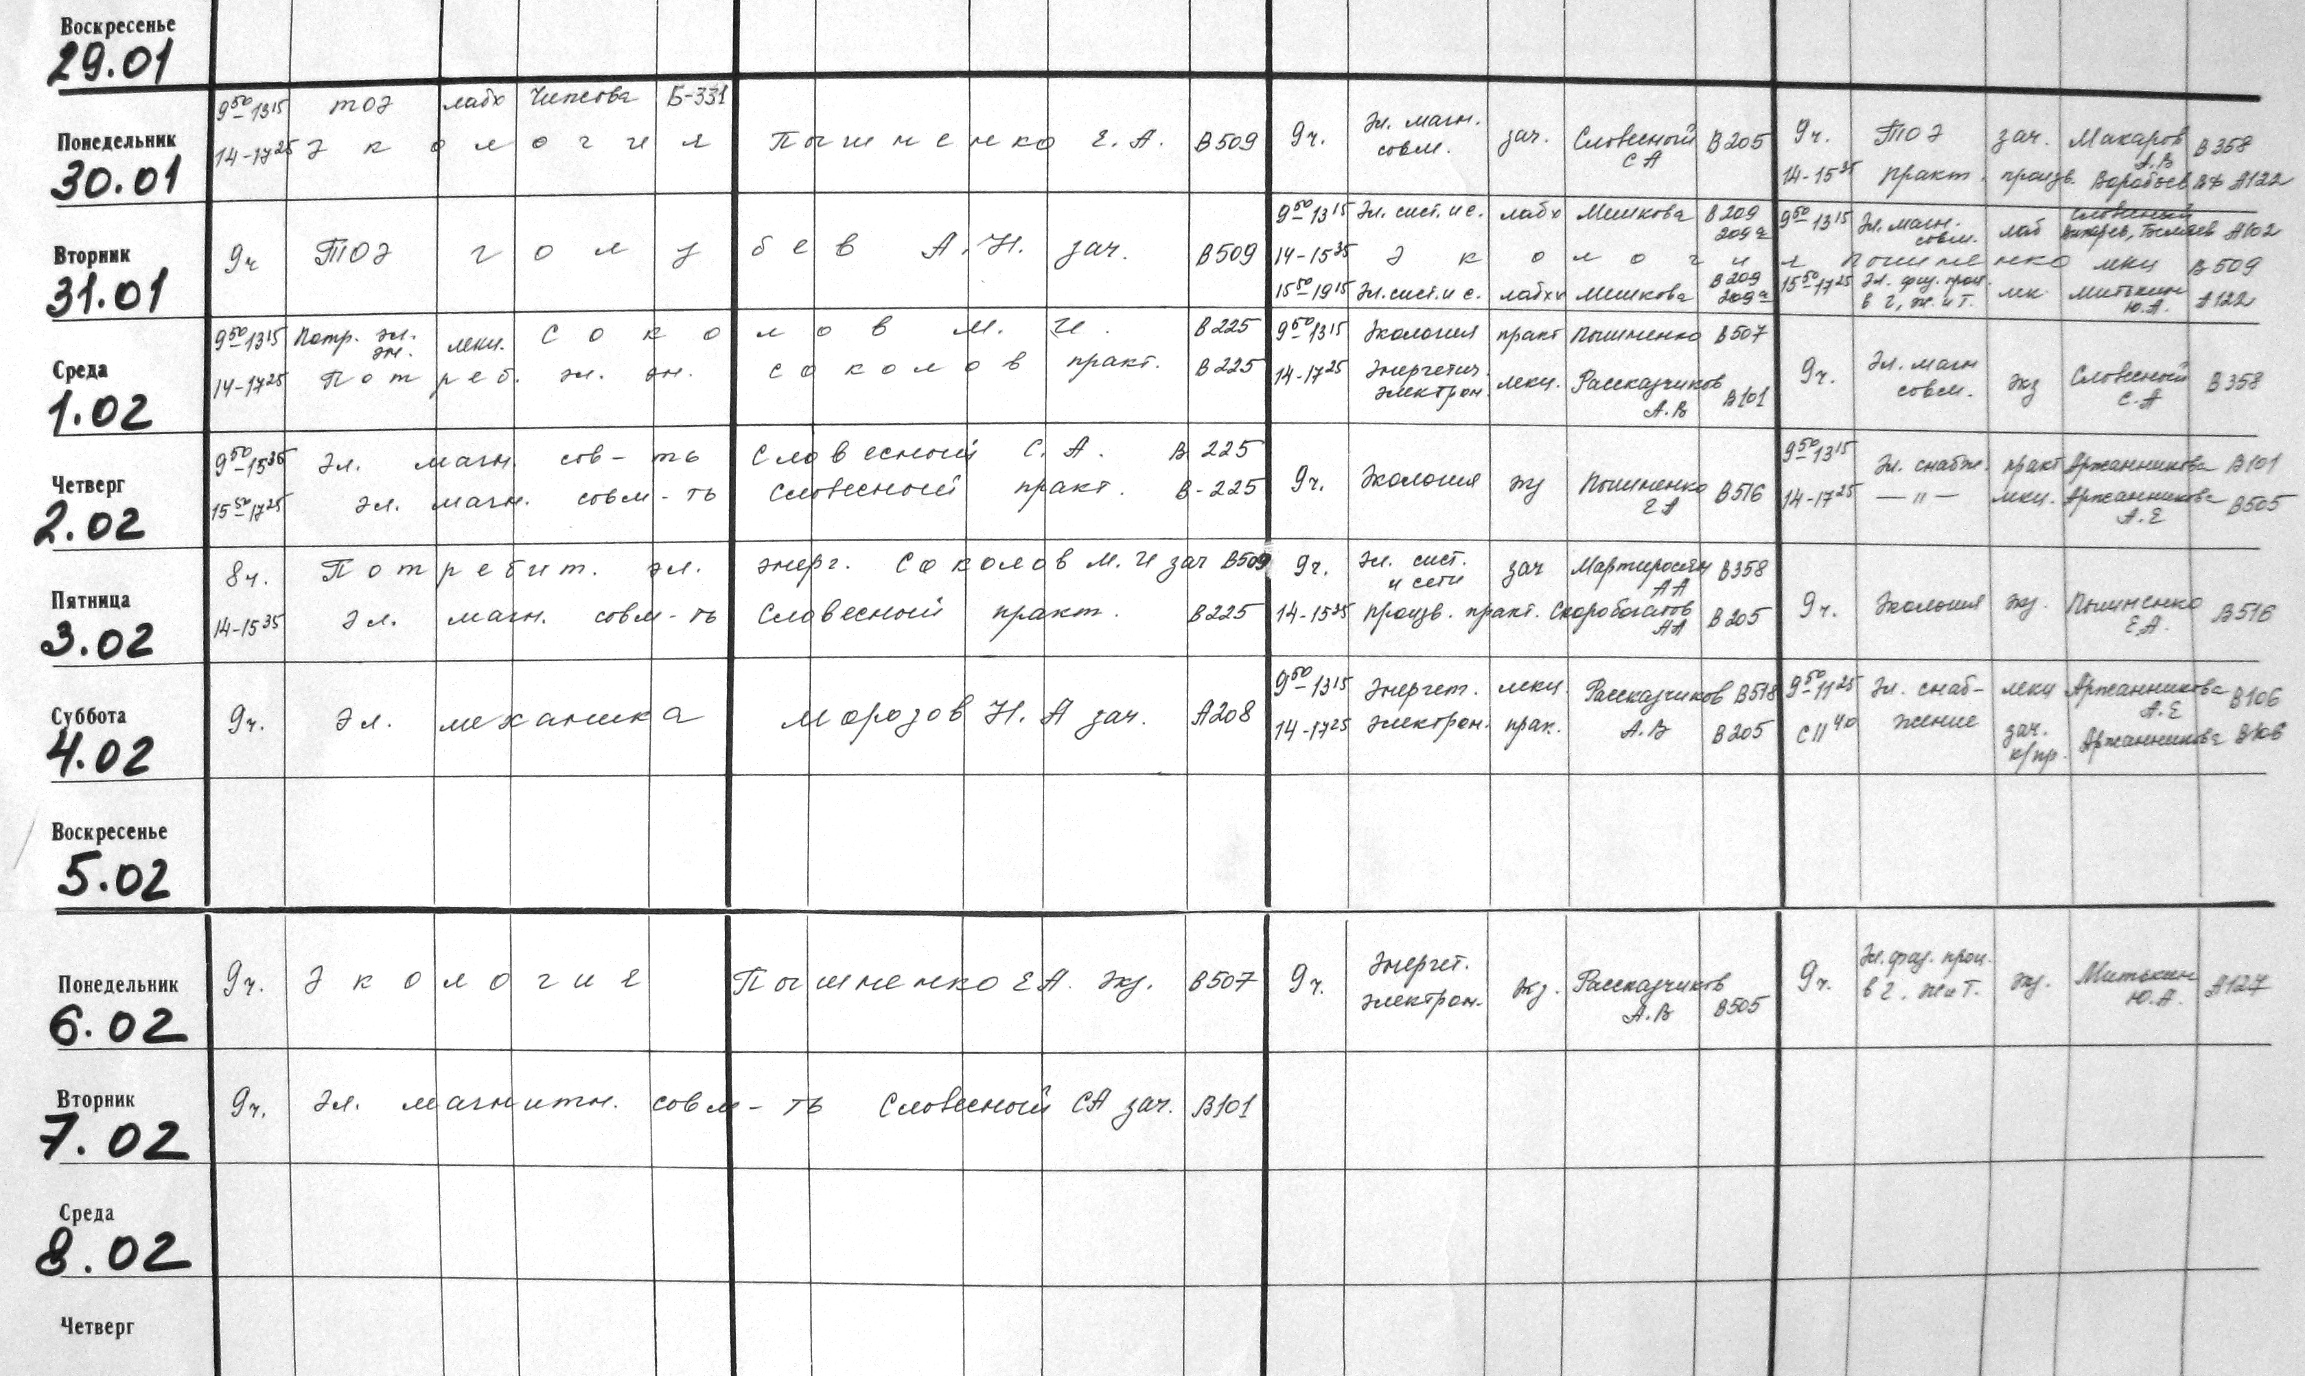 Воскресенье
29.01
Понедельник
30.01
9⁵⁰-13¹⁵ ТОЭ лабх Б-331
14-17²⁵ Экология Пышненко Е.А. В509
9ч. Эл. магн. совм. зач. Словесный С А В205
9ч. ТОЭ зач. Макаров А.В В358
14-15³⁵ практ. произв. Воробьев ВФ А122
Вторник
31.01
9ч ТОЭ Голубев А.Н. зач. В509
9⁵⁰-13¹⁵ Эл. сист. и с. лабх Мешкова В209 209а
14-15³⁵ Экология Пышненко лекц В509
15⁵⁰-19¹⁵ Эл. сист. и с. лабхх Мешкова В209 209а
9⁵⁰-13¹⁵ Эл. магн. совм. лаб Словесный А102
15⁵⁰-17²⁵ Эл. физ. проц. в г, ж. и т. лк Митькин Ю.А. А122
Среда
1.02
9⁵⁰-13¹⁵ Потр. эл. эн. лекц. Соколов М. И. В225
14-17²⁵ Потреб. эл. эн. Соколов практ. В225
9⁵⁰-13¹⁵ Экология практ Пышненко В507
14-17²⁵ Энергетич. электрон. лекц. Рассказчиков А.В В101
9ч. Эл. магн совм. экз Словесный С.А В358
Четверг
2.02
9⁵⁰-15³⁵ Эл. магн. сов-ть Словесный С. А. В 225
15⁵⁰-17²⁵ Эл. магн. совм-ть Словесный практ. В-225
9ч. Экология экз Пышненко Е А В516
9⁵⁰-13¹⁵ Эл. снабж. практ Аржанникова В101
14-17²⁵ — " — лекц. Аржанникова А.Е В505
Пятница
3.02
8ч. Потребит. эл. энерг. Соколов М. И зач В509
14-15³⁵ Эл. магн. совм-ть Словесный практ. В225
9ч. Эл. сист. и сети зач Мартиросян АА В358
14-15³⁵ произв. практ. Скоробогатов АА В205
9ч. Экология экз. Пышненко Е.А. В516
Суббота
4.02
9ч. Эл. механика Морозов Н. А зач. А208
9⁵⁰-13¹⁵ Энергет. лекц. Рассказчиков В518
14-17²⁵ электрон. прак. А.В В205
9⁵⁰-11²⁵ Эл. снаб- лекц Аржанникова А.Е В106
с 11⁴⁰ жение зач. к/пр. Аржанникова В106
Воскресенье
5.02
Понедельник
6.02
9ч. Экология Пышненко Е А. экз. В507
9ч. Энергет. электрон. экз. Рассказчиков А.В В505
9ч. Эл. физ. проц. в г, ж и т. экз. Митькин Ю.А. А127
Вторник
7.02
9ч. Эл. магнитн. совм-ть Словесный СА зач. В101
Среда
8.02
Четверг